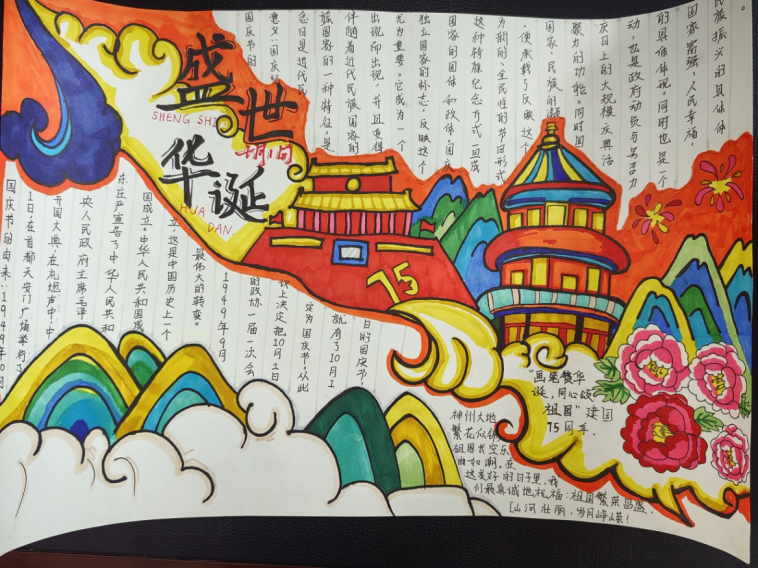 盛世
SHENG SHI
十月一日
华诞
HUA DAN
国庆节的
意义:国庆纪
念日是近代民
族国家的一种特征,是
伴随着近代民族国家的
出现而出现,并且变得
尤为重要。它成为一个
独立国家的标志,反映这个
国家的国体和政体。国庆
这种特殊纪念方式一旦成
为新的、全民性的节日形式
,便承载了反映这个
国家、民族的凝
聚力的功能。同时国
庆日上的大规模庆典活
动,也是政府动员与号召力
的具体体现。同时也是一个
国家富强、人民幸福,
民族振兴的具体体
75
国庆节的由来:1949年10月
1日,在首都天安门广场举行了
开国大典,在礼炮声中,中
央人民政府主席毛泽
东庄严宣告了中华人民共和
国成立。中华人民共和国成
立,这是中国历史上一个
最伟大的转变。
1949年9月
的政协一届一次会
议上决定把10月1日
定为国庆节。从此
就有了10月1
日的国庆节!
"画笔赞华
诞,同心颂
祖国"建国
75周年.
神州大地
繁花似锦
祖国长空乐
曲如潮。在
这美好的日子里,我
们最真诚地祝福:祖国繁荣昌盛.
山河壮丽,岁月峥嵘!